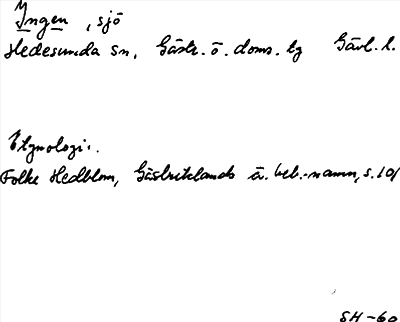 Yngen, sjö
Hedesunda sn, Gästr. ö. doms. lg Gävl. l.
Etymologi:.
Folke Hedblom, Gästriklands ä. beb.-namn, s. 101
SH-60